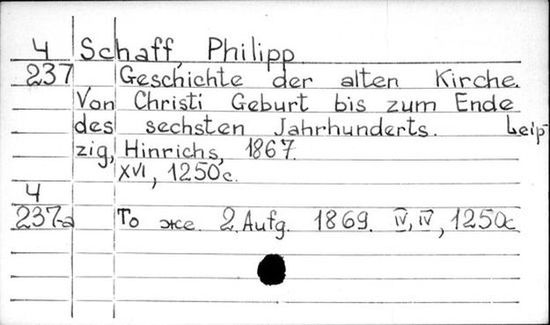 4 Schaff, Philipp
237 Geschichte der alten Kirche.
Von Christi Geburt bis zum Ende
des sechsten Jahrhunderts. Leip-
zig, Hinrichs, 1867.
XVI, 1250 с.
4
237-a То же. 2. Aufg. 1869. IV, IV, 1250 с.